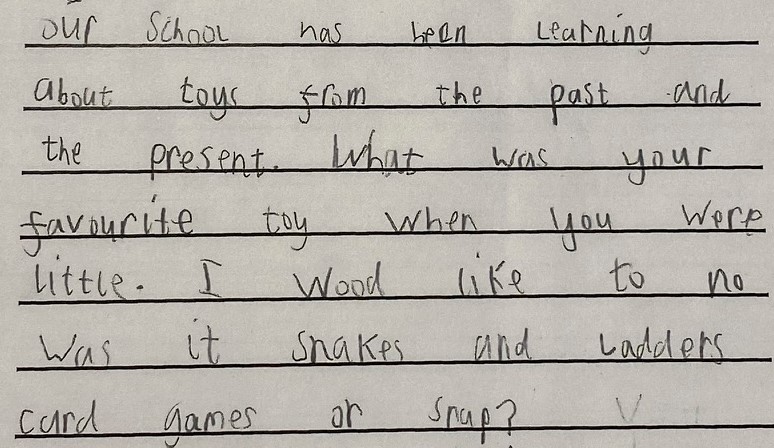 our School has been Learning
about toys from the past and
the present. What was your
favourite toy when you were
little. I Wood like to no
Was it snakes and Ladders
card games or snap?